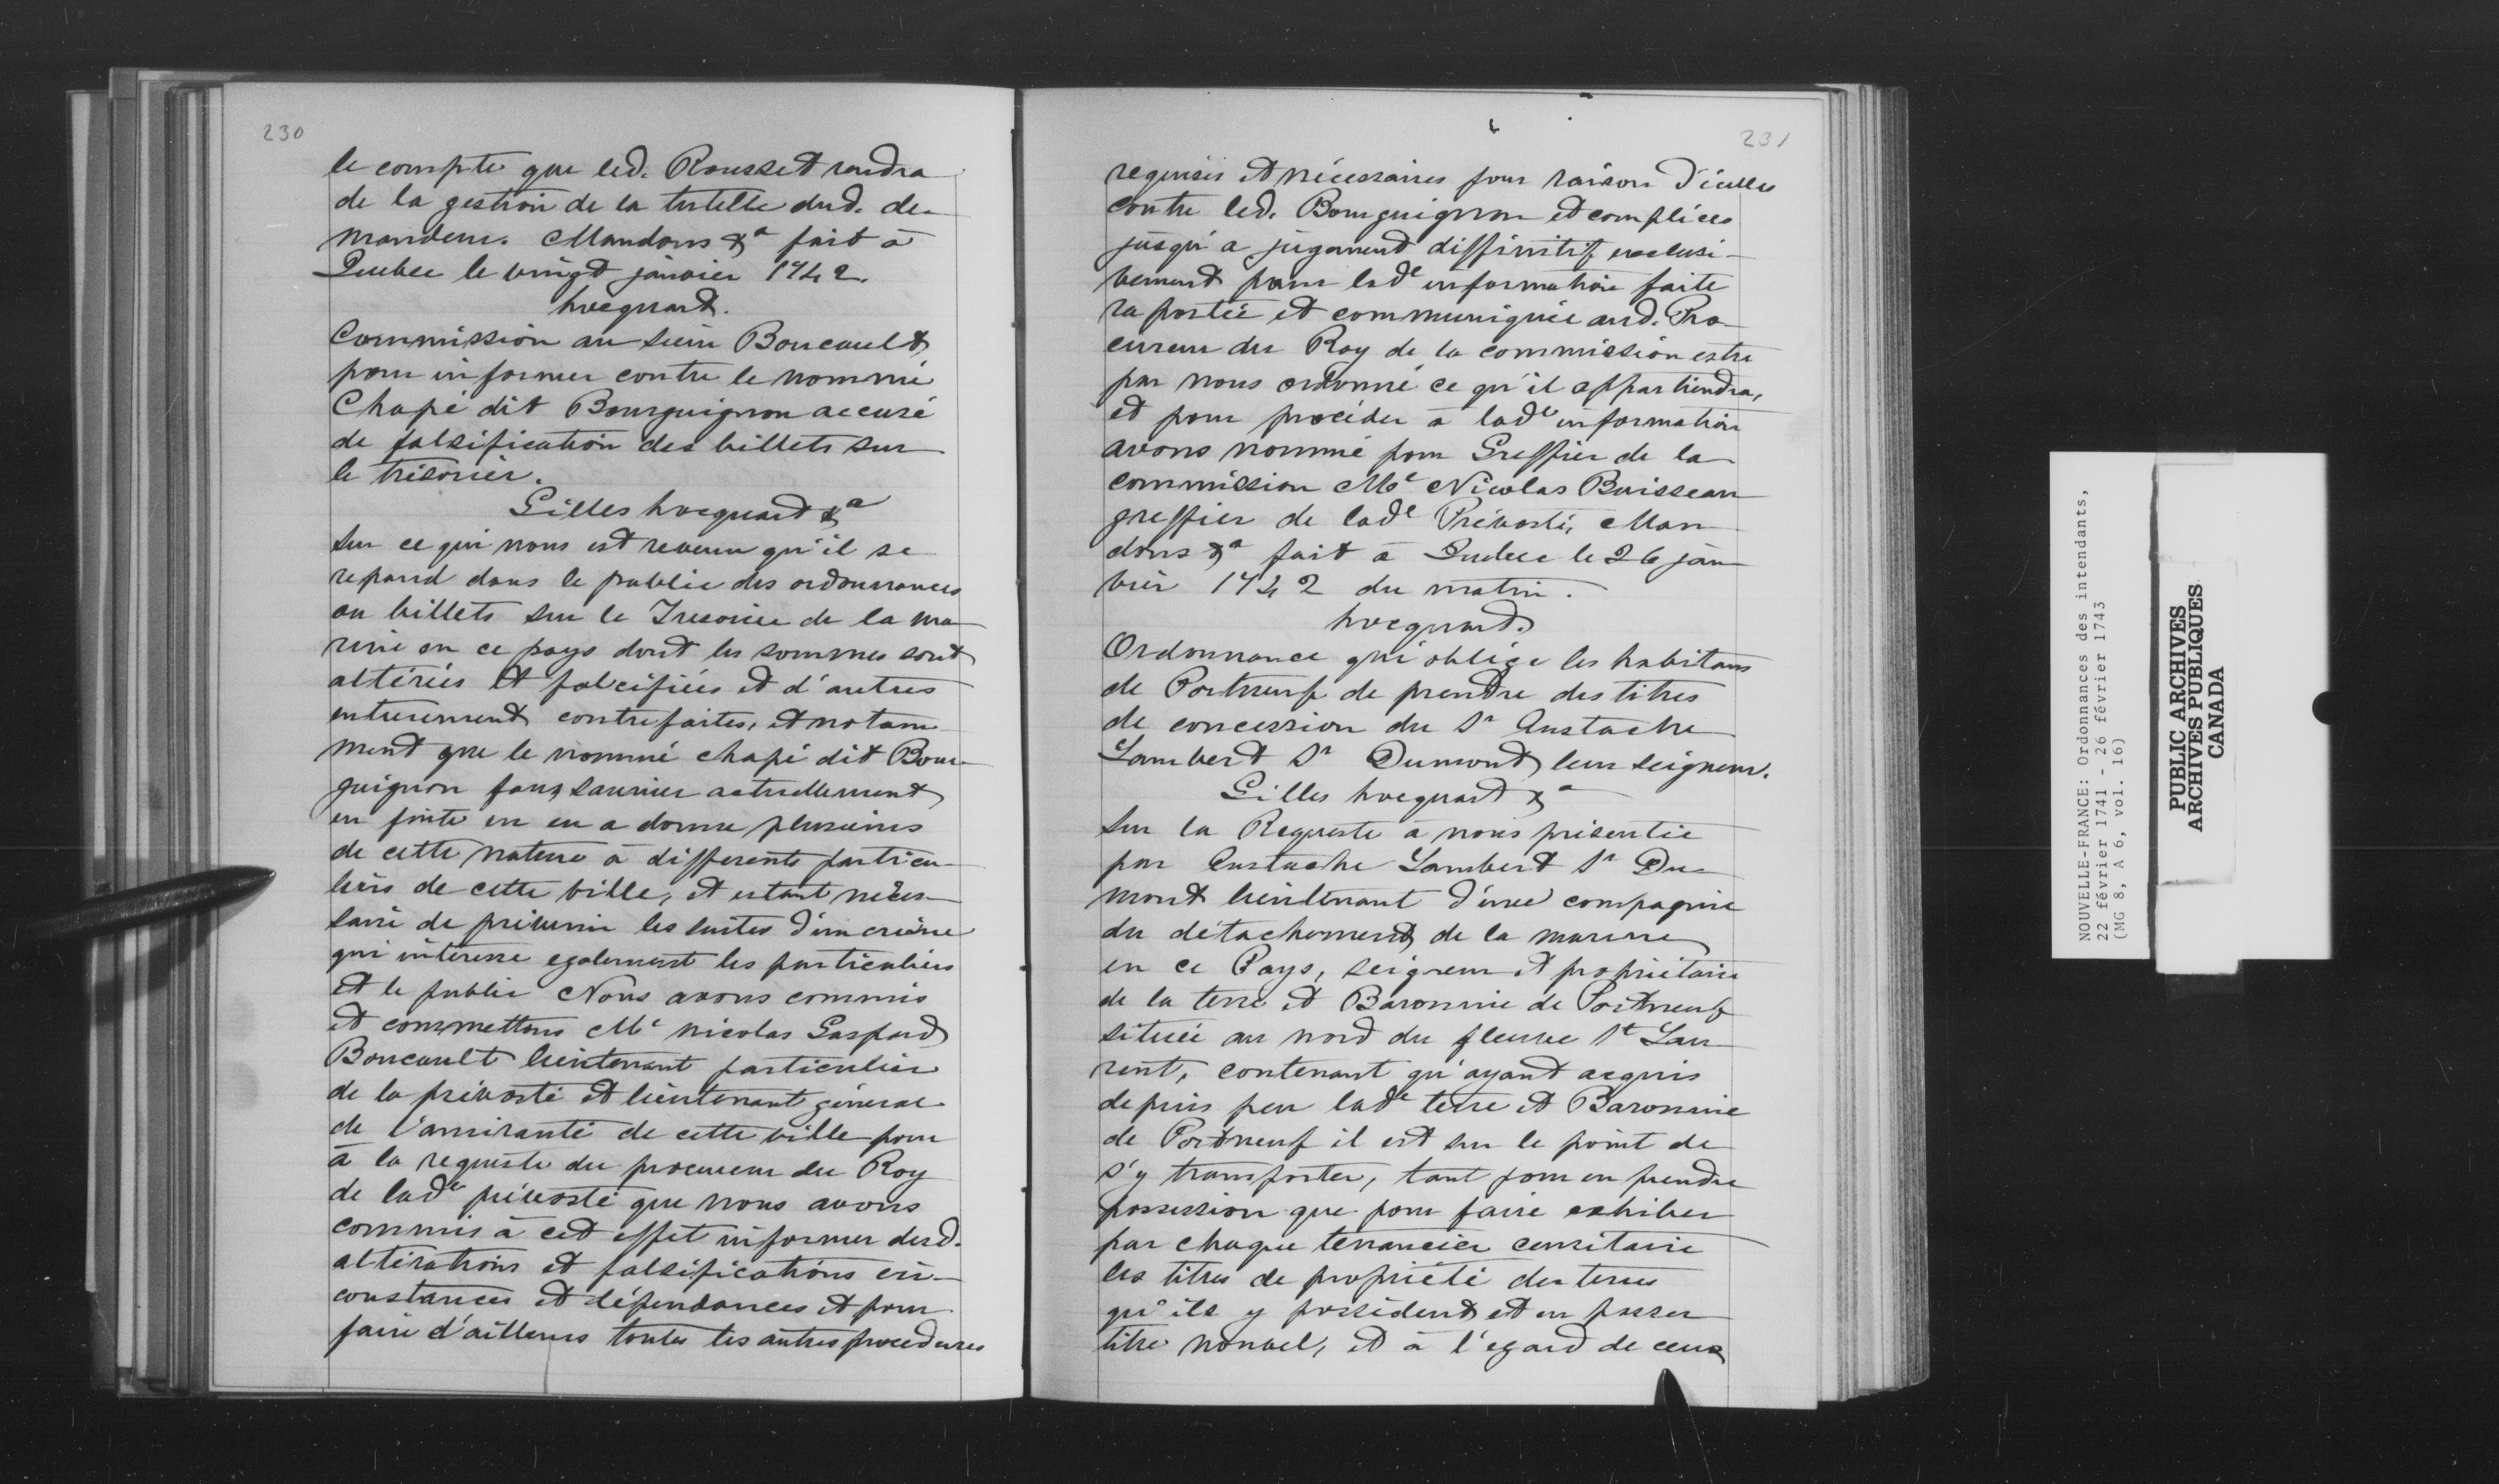 230
le compte que led. Rousset rendra
de la gestion de la tutelle dud. de-
mandeur. Mandons &a fait à
Quebec le vingt janvier 1742.
hocquart.
Commission au sieur Boucault
pour informer contre le nommé
Chapé dit Bourguignon accusé
de falsification des billets sur
le trésorier.
Gilles hocquart &a
Sur ce qui nous est revenu qu'il se
repand dans le public des ordonnances
ou billets sur le Tresorier de la ma-
rine en ce pays dont les sommes sont
altérées et falcifiées et d'autres
entierement contrefaites, et notam-
ment que le nommé chapé dit Bour-
guignon faux saunier actuellement
en fuite en en a donné plusieurs
de cette nature à differents particu-
liers de cette ville, et estant neces-
saire de prévenir les suites d'un crime
qui intéresse egalement les particuliers
et le public Nous avons commis
et commettons Me Nicolas Gaspard
Boucault lieutenant particulier
de la prévosté et lieutenant général
de l'amirauté de cette ville pour
à la requeste du procureur du Roy
de lade prévosté que nous avons
commis à cet effet informer desd.
altérations et falsifications cir-
constances et dépendances et pour
faire d'ailleurs toutes les autres procedures
231
requises et nécessaires pour raison d'icelles
contre led. Bourguignon et complices
jusqu'a jugement diffinitif exclusi-
vement pour lade information faite
raportée et communiquée aud. Pro-
cureur du Roy de la commission estre
par nous ordonné ce qu'il appartiendra,
et pour procéder à lade information
avons nommé pour Greffier de la
commission Me Nicolas Boisseau
greffier de lade Prévosté, Man-
dons &a fait à Quebec le 26 jan-
vier 1742 du matin.
hocquart.
Ordonnance qui oblige les habitans
de Portneuf de prendre des titres
de concession du Sr Eustache
Lambert Sr Dumont leur seigneur.
Gilles hocquart &a
Sur la Requeste à nous présentée
par Eustache Lambert Sr Du-
mont lieutenant d'une compagnie
du détachement de la marine
en ce Pays, seigneur et propriétaire
de la terre et Baronnie de Portneuf
située au nord du fleuve St Lau-
rent, contenant qu'ayant acquis
depuis peu lade terre et Baronnie
de Portneuf il est sur le point de
s'y transporter, tant pour en prendre
possession que pour faire exhiber
par chaque tenancier censitaire
les titres de propriété des terres
qu'ils y possèdent et en passer
titre nouvel, et à l'egard de ceux
NOUVELLE-FRANCE: Ordonnances des intendants,
22 février 1741 - 26 février 1743
(MG 8, A 6, vol. 16)
PUBLIC ARCHIVES
ARCHIVES PUBLIQUES
CANADA